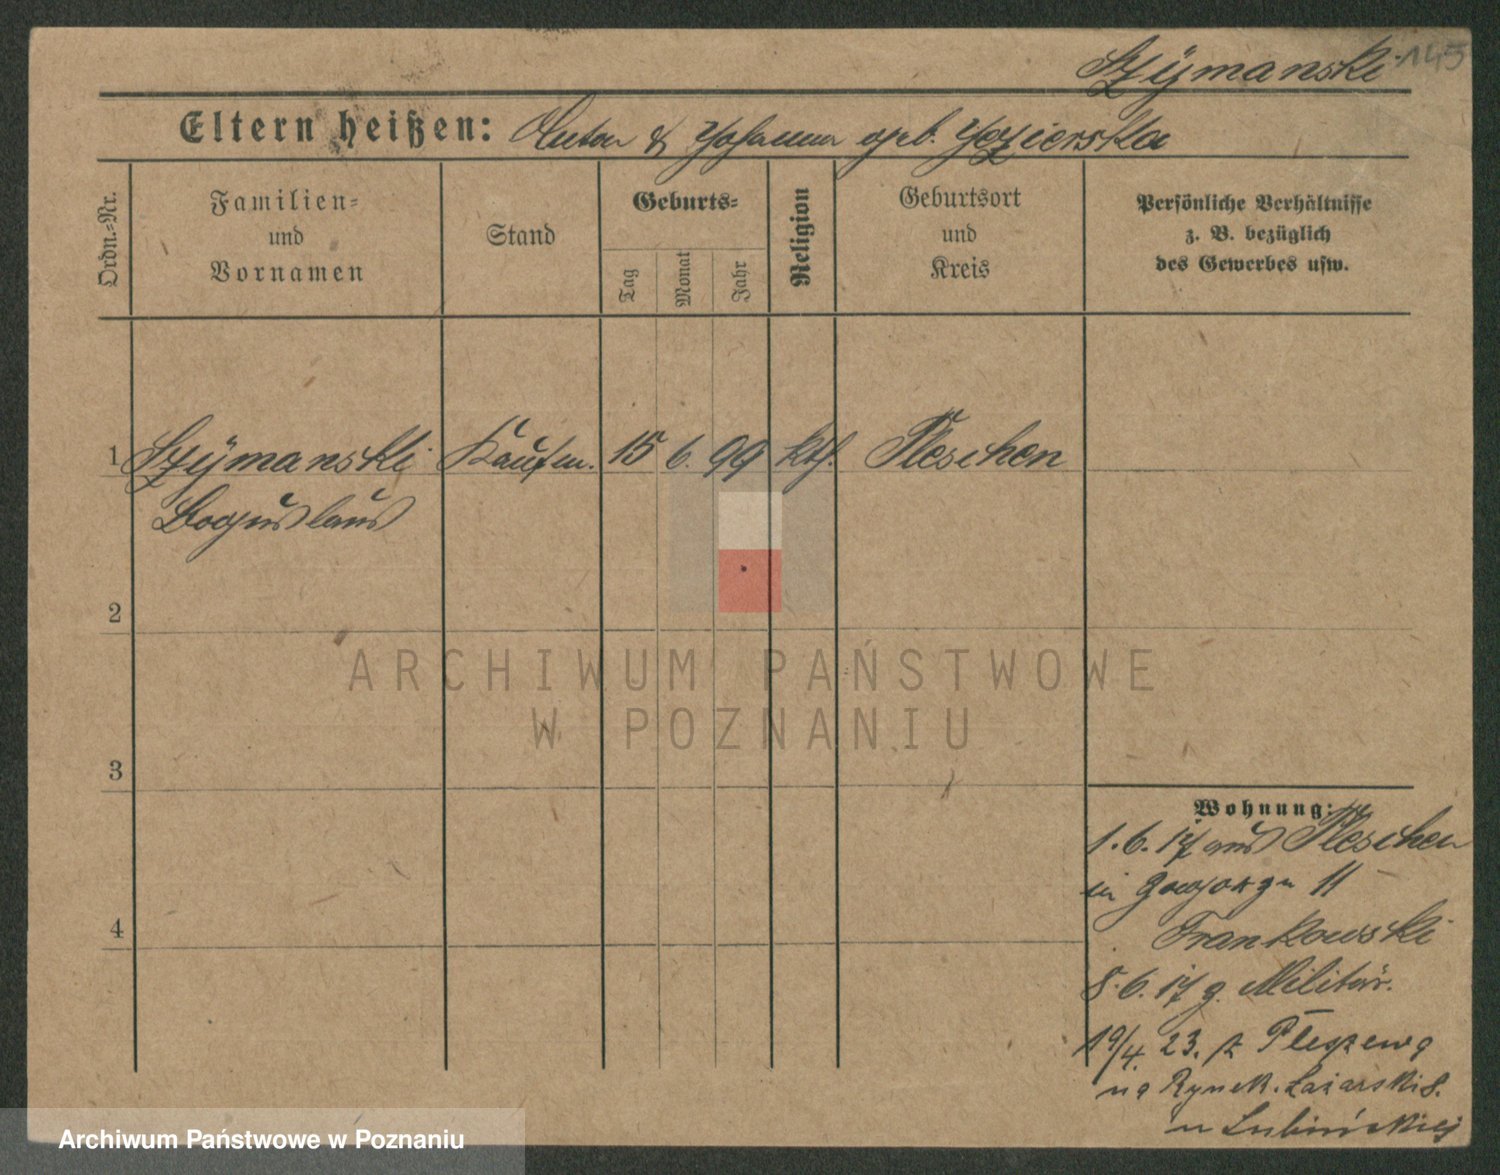 Szÿmanski 145
Eltern heißen: Anton & Johanna geb. Jezierska
Ordn.-Nr.
Familien-
und
Vornamen
Stand
Geburts-
Tag
Monat
Jahr
Religion
Geburtsort
und
Kreis
Persönliche Verhältnisse
z. B. bezüglich
des Gewerbes usw.
1 Szÿmanski Kaufm. 15 6. 99 kth. Pleschen
Boguslaus
2
ARCHIWUM PAŃSTWOWE
W POZNANIU
3
4
Wohnung:
1. 6. 17 aus Pleschen
in 11
Frankowski
8. 6. 17 z. Militär.
19/4. 23. z Pleszewa
na Rynek. Łazarski 8.
u Lubińskiej
Archiwum Państwowe w Poznaniu